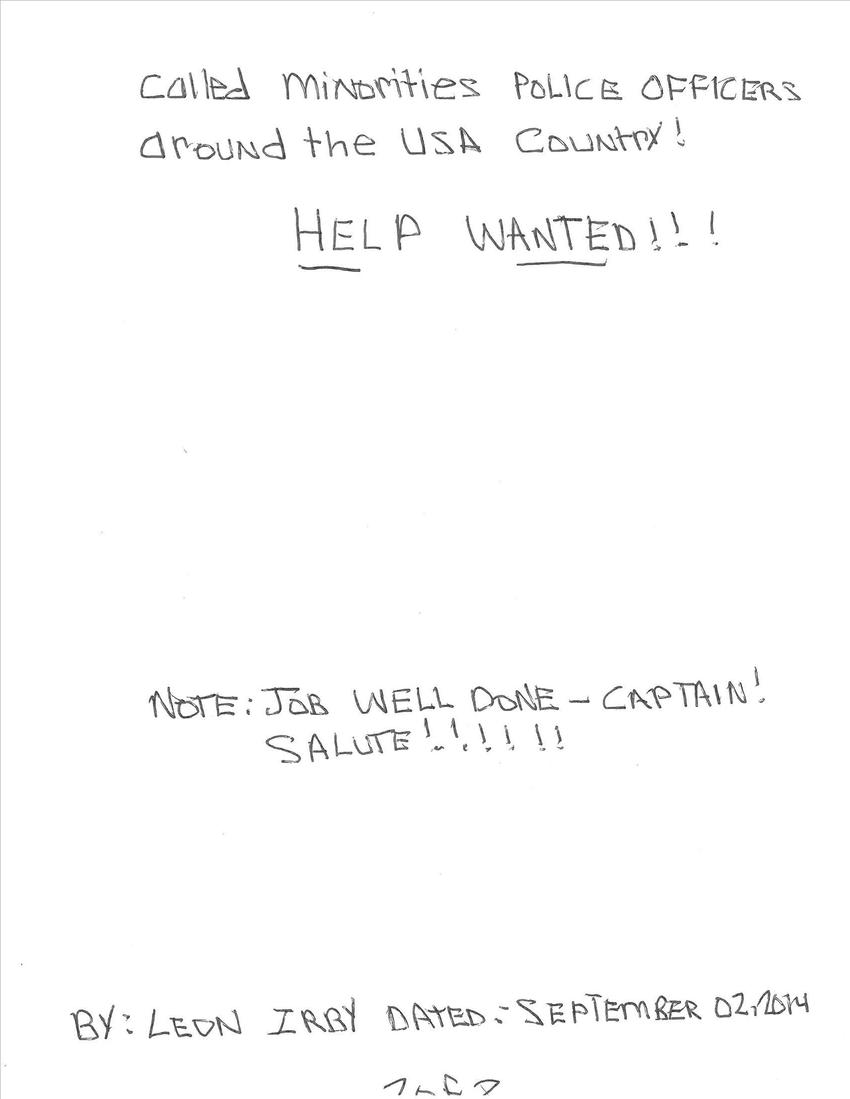 Called Minorities POLICE OFFICERS
around the USA COUNTRY!
HELP WANTED!!!
NOTE: JOB WELL DONE – CAPTAIN!
SALUTE!!!!!!
BY: LEON IRBY DATED:- SEPTEMBER 02, 2014